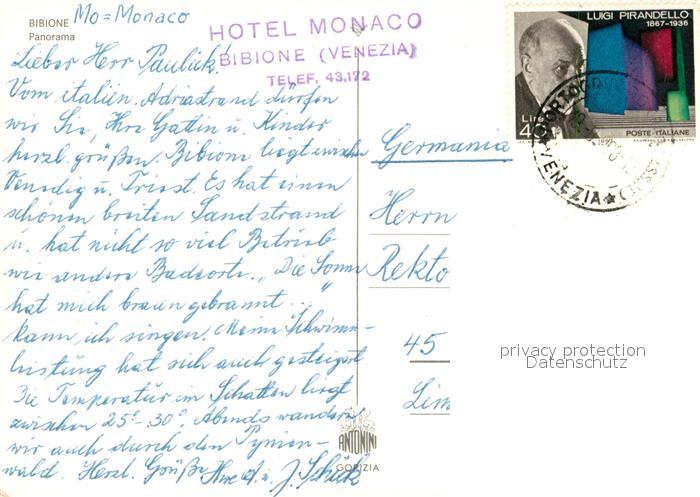 Mo=Monaco
BIBIONE
Panorama
HOTEL MONACO
BIBIONE (VENEZIA)
TELEF. 43.172
LUIGI PIRANDELLO
1867-1936
LIRE
40
POSTE ITALIANE
VENEZIA
Lieber Herr Paulick!
Vom italien. Adriastrand dürfen
wir Sie, Ihre Gattin u. Kinder
herzl. grüßen. Bibione liegt zwischen
Venedig u. Triest. Es hat einen
schönen breiten Sandstrand
u. hat nicht so viel Betrieb
wie andere Badeorte. „Die Sonne
hat mich braun gebrannt..."
kann ich singen. Meine Schwimm-
leistung hat sich auch gesteigert.
Die Temperatur im Schatten liegt
zwischen 25°-30°. Abends wandern
wir auch durch den Pynien-
wald. Herzl. Grüße Ihre
Germania
Herrn
Rekto
45
Lim
ANTONINI
GORIZIA
privacy protection
Datenschutz